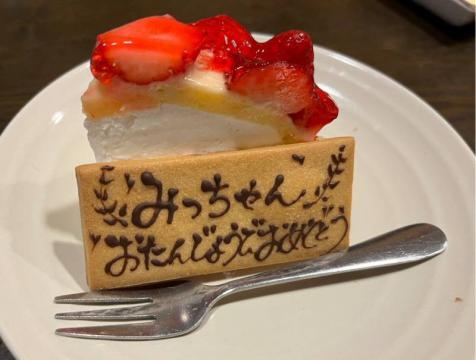 みっちゃん
おたんじょうびおめでとう